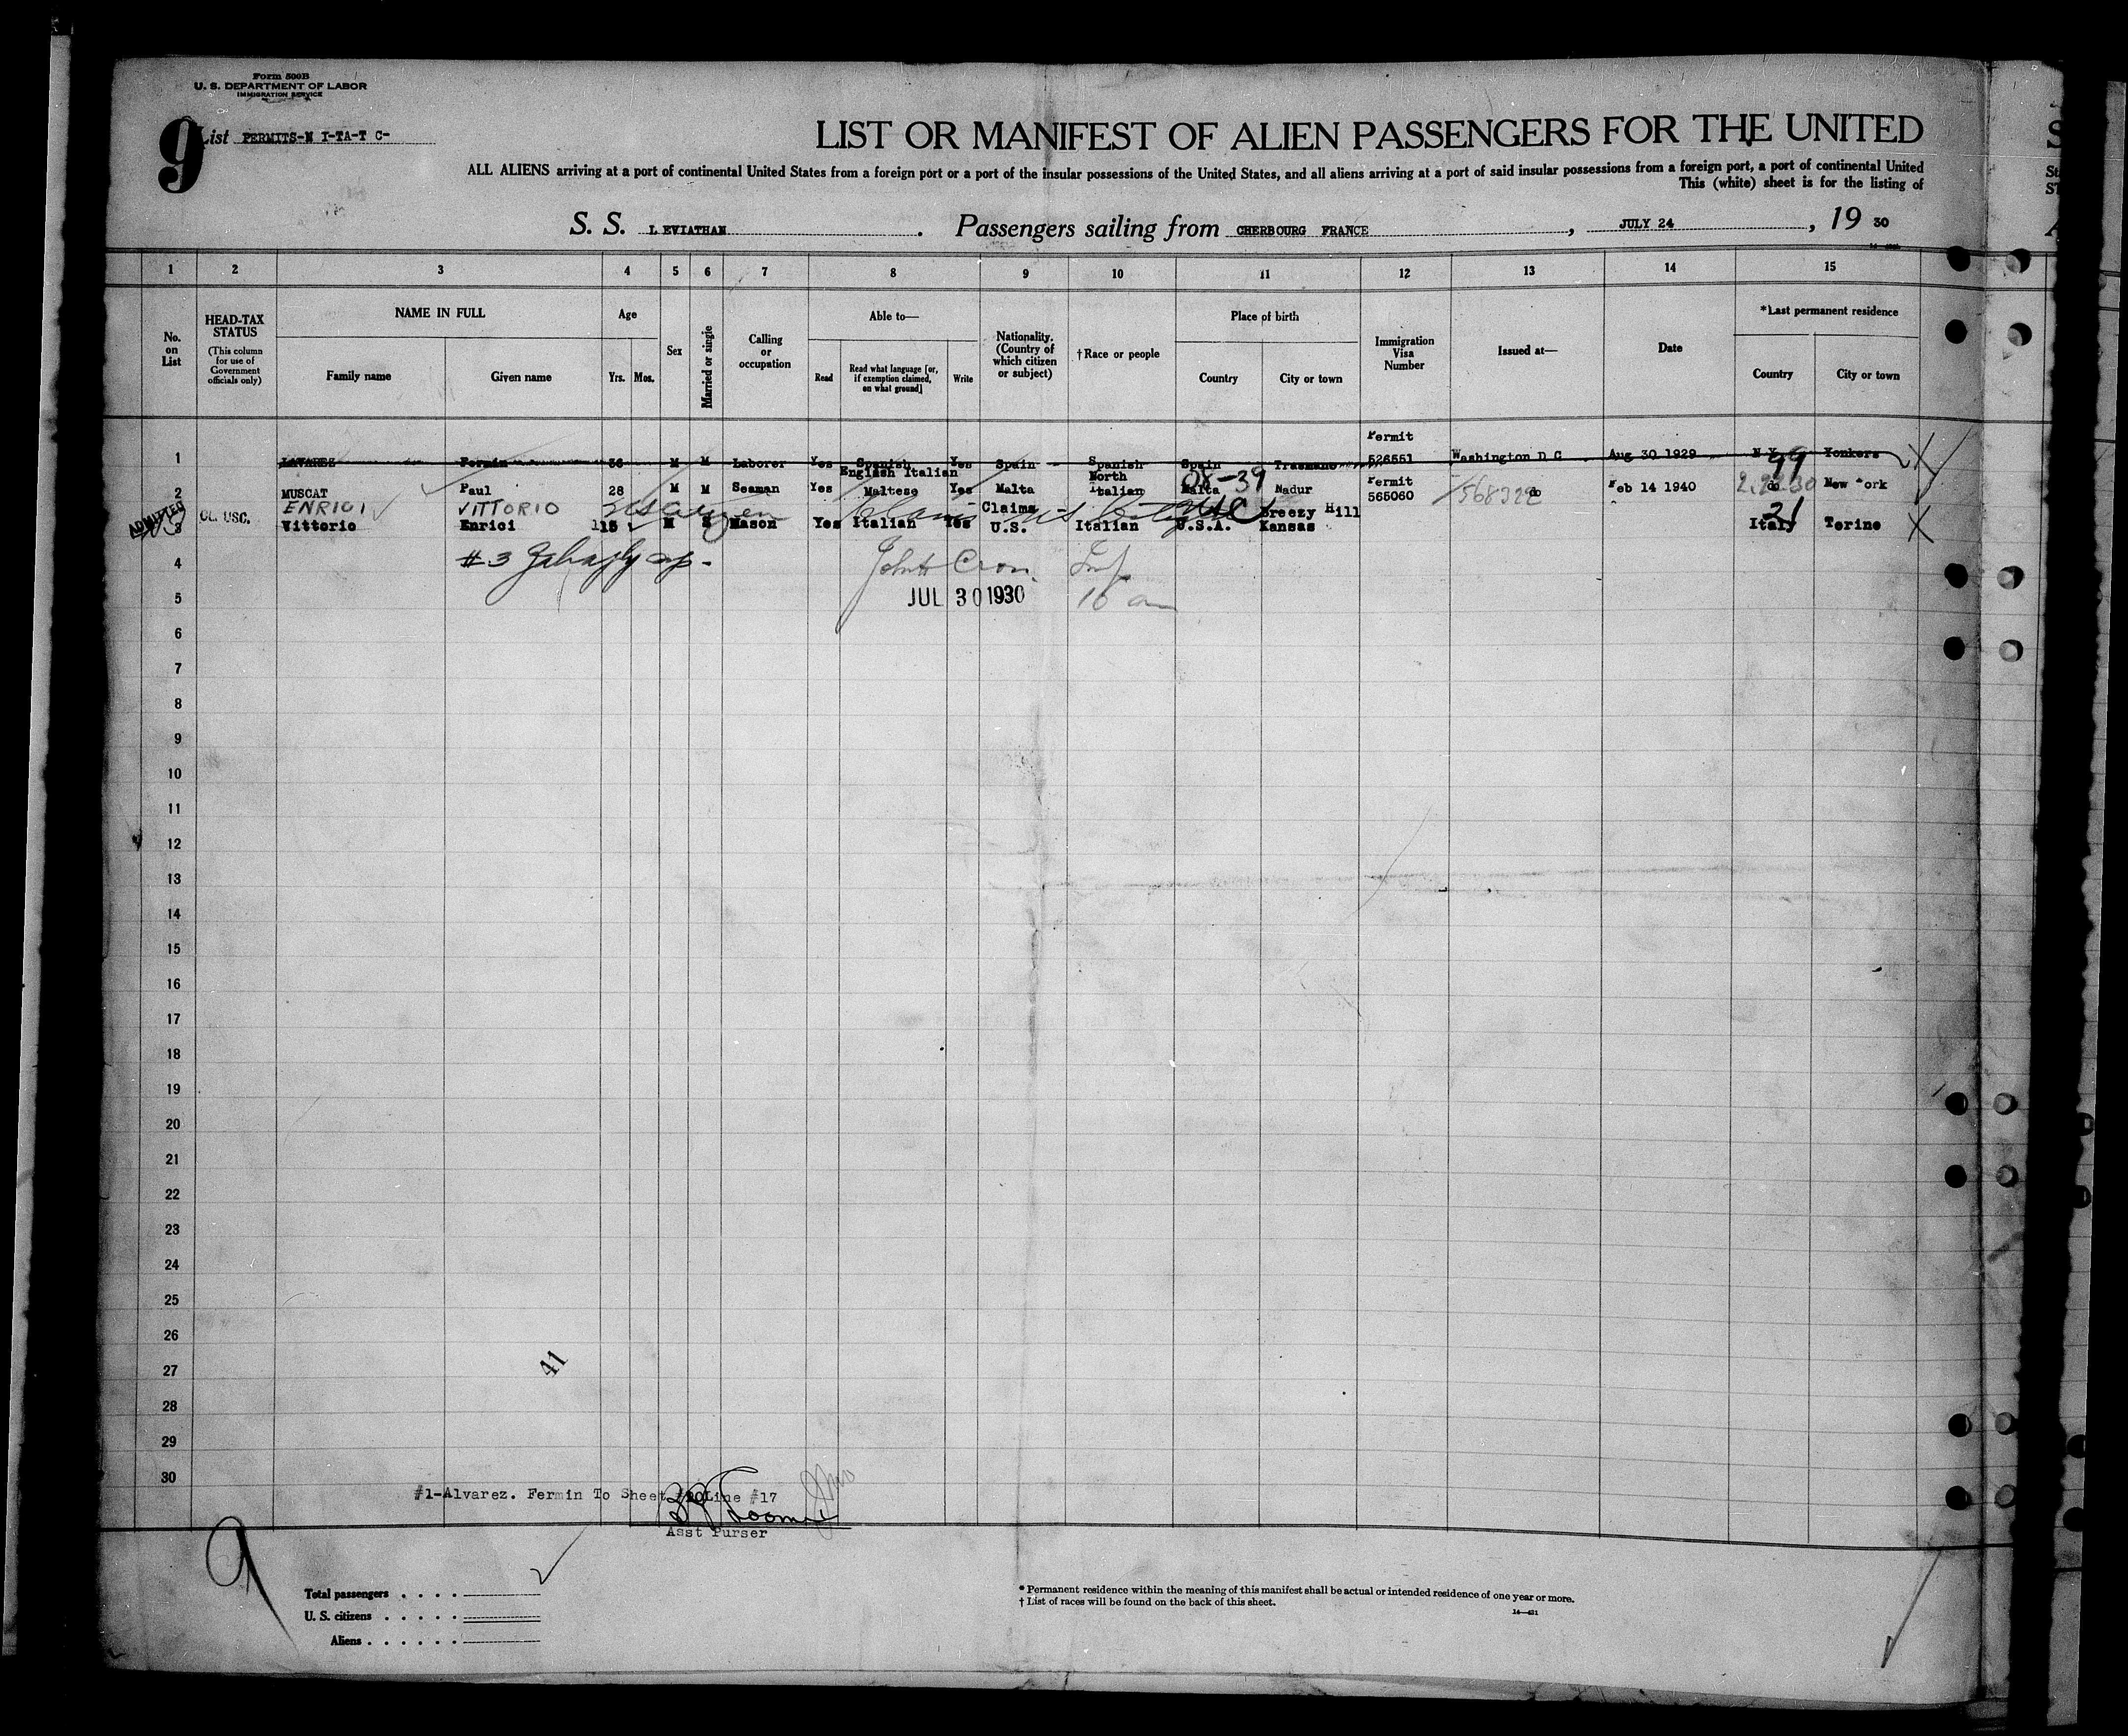 Form 500B
U. S. DEPARTMENT OF LABOR
IMMIGRATION SERVICE
9
List PERMITS-N I-TA-T C-
LIST OR MANIFEST OF ALIEN PASSENGERS FOR THE UNITED
ALL ALIENS arriving at a port of continental United States from a foreign port or a port of the insular possessions of the United States, and all aliens arriving at a port of said insular possessions from a foreign port, a port of continental United
This (white) sheet is for the listing of
S. S. LEVIATHAN. Passengers sailing from CHERBOURG FRANCE, JULY 24, 19 30
1 2 3 4 5 6 7 8 9 10 11 12 13 14 15
No. on List
HEAD-TAX STATUS
(This column for use of Government officials only)
NAME IN FULL
Family name Given name
Age
Yrs. Mos.
Sex
Married or single
Calling or occupation
Able to—
Read Read what language [or, if exemption claimed, on what ground] Write
Nationality. (Country of which citizen or subject)
†Race or people
Place of birth
Country City or town
Immigration Visa Number
Issued at—
Date
*Last permanent residence
Country City or town
1 Fermin 36 M M Laborer Yes Spanish Yes Spain Spanish Spain Permit 526551 Washington D C Aug 30 1929 N Y Yonkers
99
2 MUSCAT Paul 28 M M Seaman Yes English Italian Maltese Yes Malta North Italian Malta Nadur Permit 565060 do Feb 14 1940 do New York
08-39
568322
ENRICI VITTORIO
ADMITTED
3 CL. USC. Vittorio Enrici 15 M S Mason Yes Italian Yes Claims U.S. Italian U.S.A. Breezy Hill Kansas Italy Torino
21
#3
4 John Cron Insp
5 JUL 30 1930 10 am
6
7
8
9
10
11
12
13
14
15
16
17
18
19
20
21
22
23
24
25
26
27
28
29
30
41
#1-Alvarez. Fermin To Sheet Line #17
Asst Purser
9
Total passengers
U. S. citizens
Aliens
* Permanent residence within the meaning of this manifest shall be actual or intended residence of one year or more.
† List of races will be found on the back of this sheet.